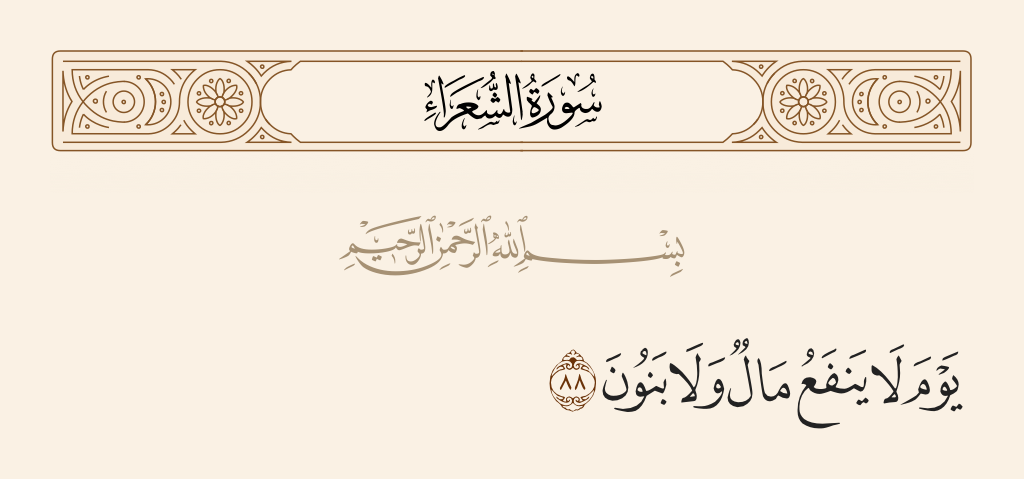 سُورَةُ الشُّعَرَاءِ
بِسْمِ ٱللَّهِ ٱلرَّحْمَٰنِ ٱلرَّحِيمِ
يَوْمَ لَا يَنفَعُ مَالٌ وَلَا بَنُونَ ٨٨